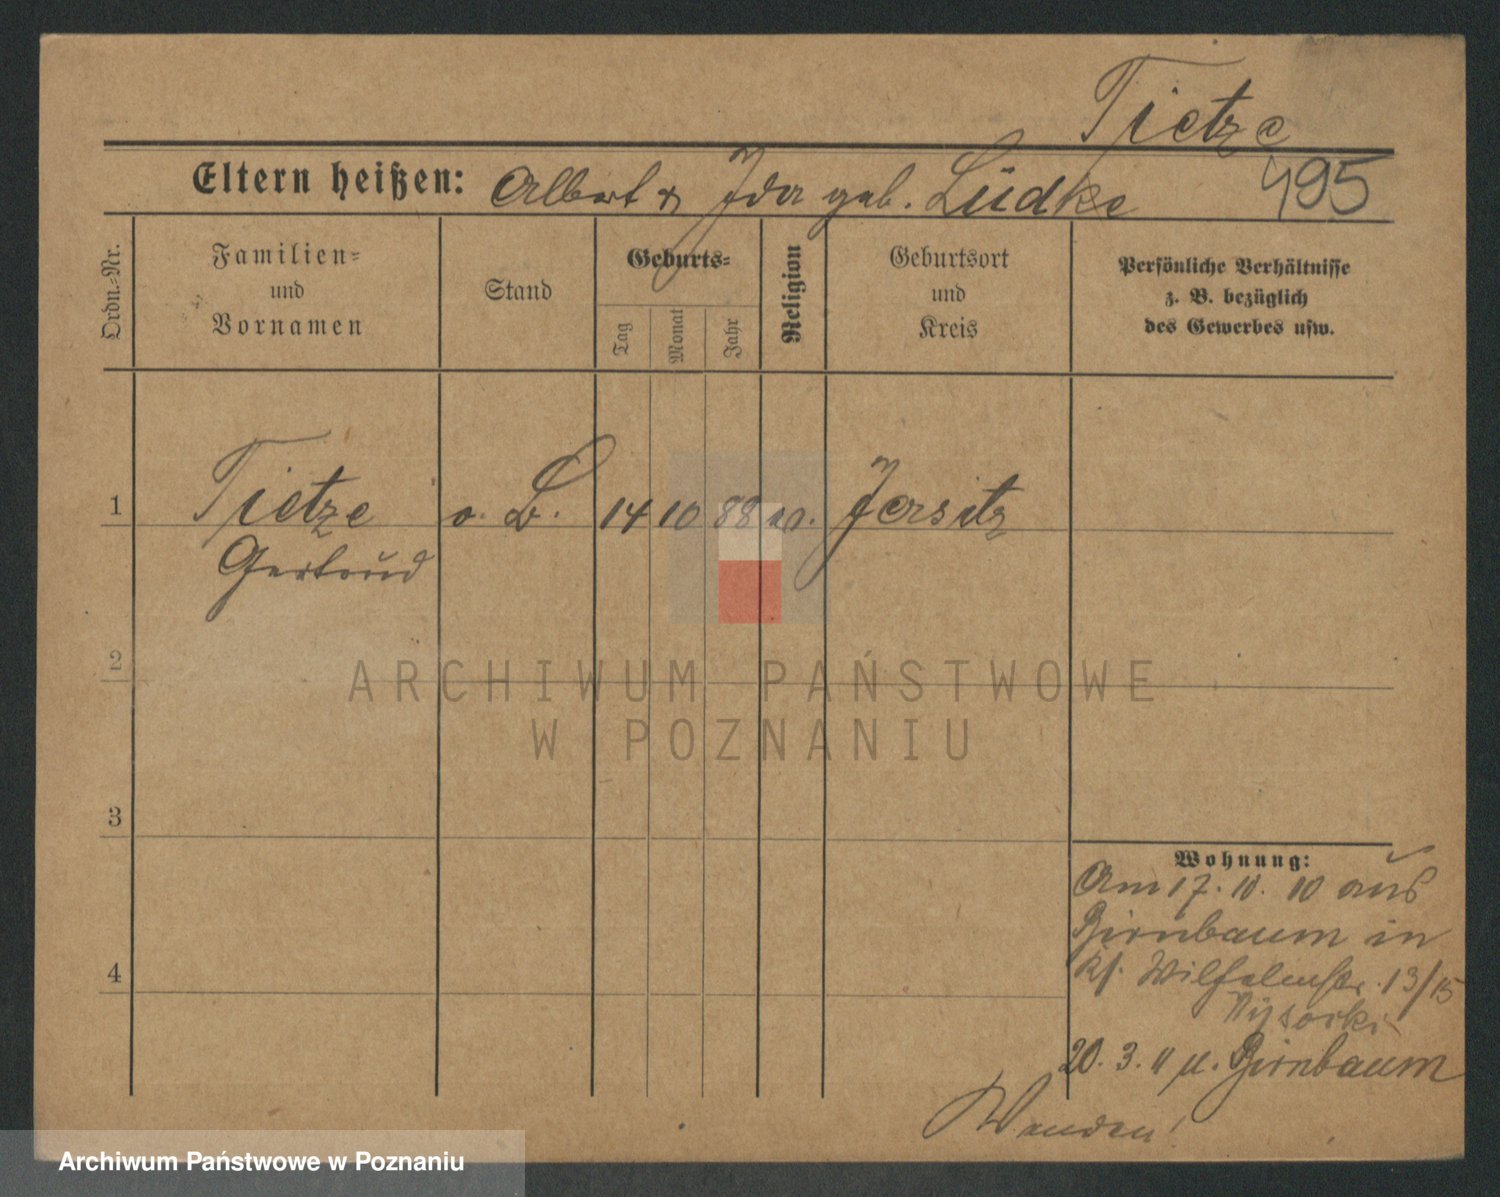 Tietze
495
Eltern heißen: Albert & Ida geb. Lüdke
Ordn.-Nr.
Familien- und Vornamen
Stand
Geburts-
Tag
Monat
Jahr
Religion
Geburtsort und Kreis
Persönliche Verhältnisse
z. B. bezüglich
des Gewerbes usw.
1 Tietze o. B. 14 10 88 Jersitz
Gertrud
2
3
4
Wohnung:
Am 17. 10. 10 aus
Birnbaum in
Kl. Wilhelmstr. 13/15
20. 3. 11 n. Birnbaum
Wenden!
ARCHIWUM PAŃSTWOWE
W POZNANIU
Archiwum Państwowe w Poznaniu